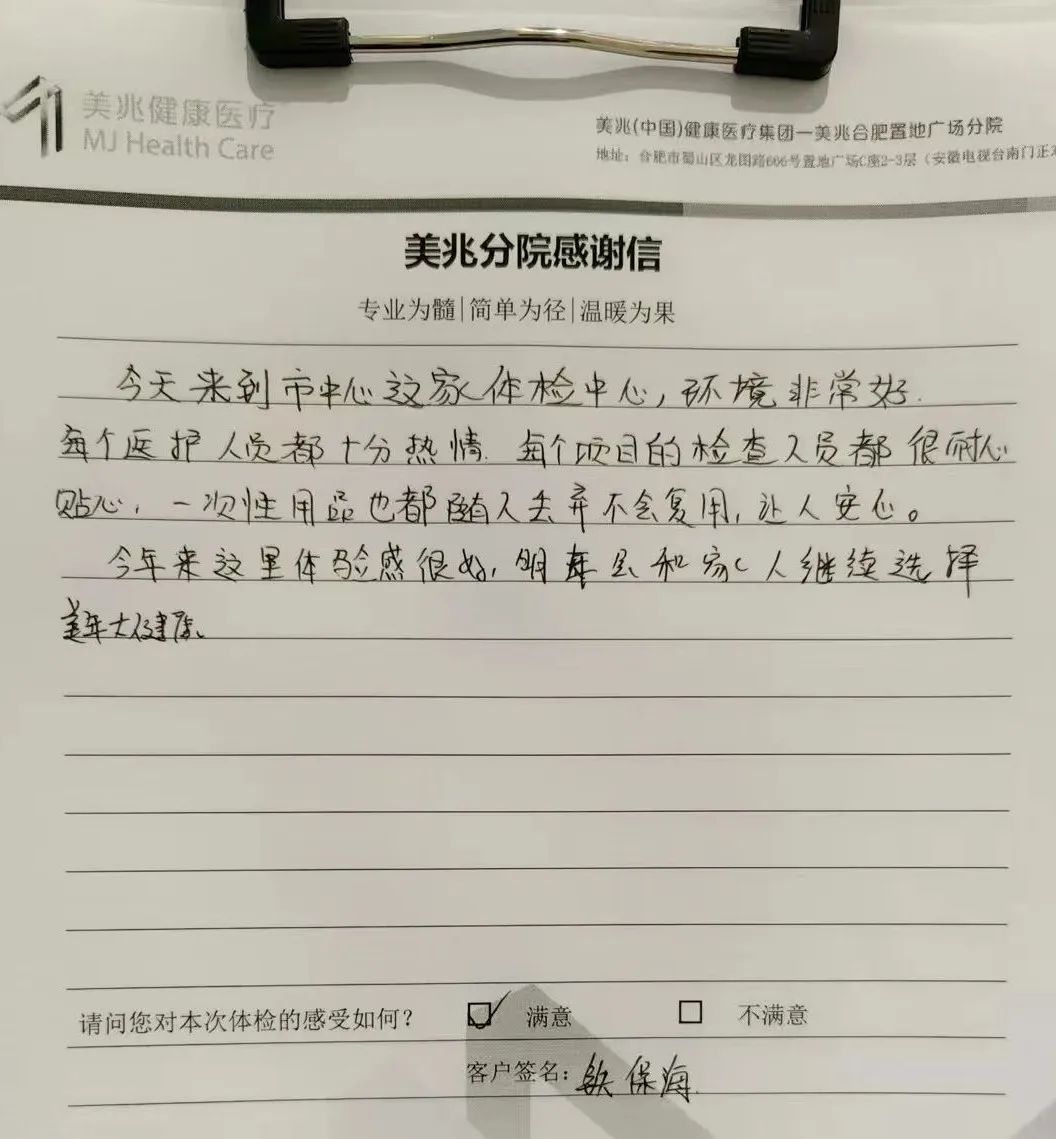 美兆健康医疗
MJ Health Care
美兆(中国)健康医疗集团一美兆合肥置地广场分院
地址：合肥市蜀山区龙图路666号置地广场C座2-3层（安徽电视台南门正对
美兆分院感谢信
专业为髓|简单为径|温暖为果
今天来到市中心这家体检中心，环境非常好.
每个医护人员都十分热情.每个项目的检查人员都很耐心
贴心，一次性用品也都随人丢弃不会复用，让人安心。
今年来这里体验感很好，明年会和家人继续选择
美年大健康。
请问您对本次体检的感受如何？ 满意 不满意
客户签名：保海